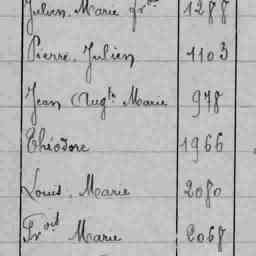 Julien. Marie frçois 1288
Pierre. Julien 1103
Jean Augte Marie 978
Théodore 1966
Louis. Marie 2080
Frçois Marie 2068